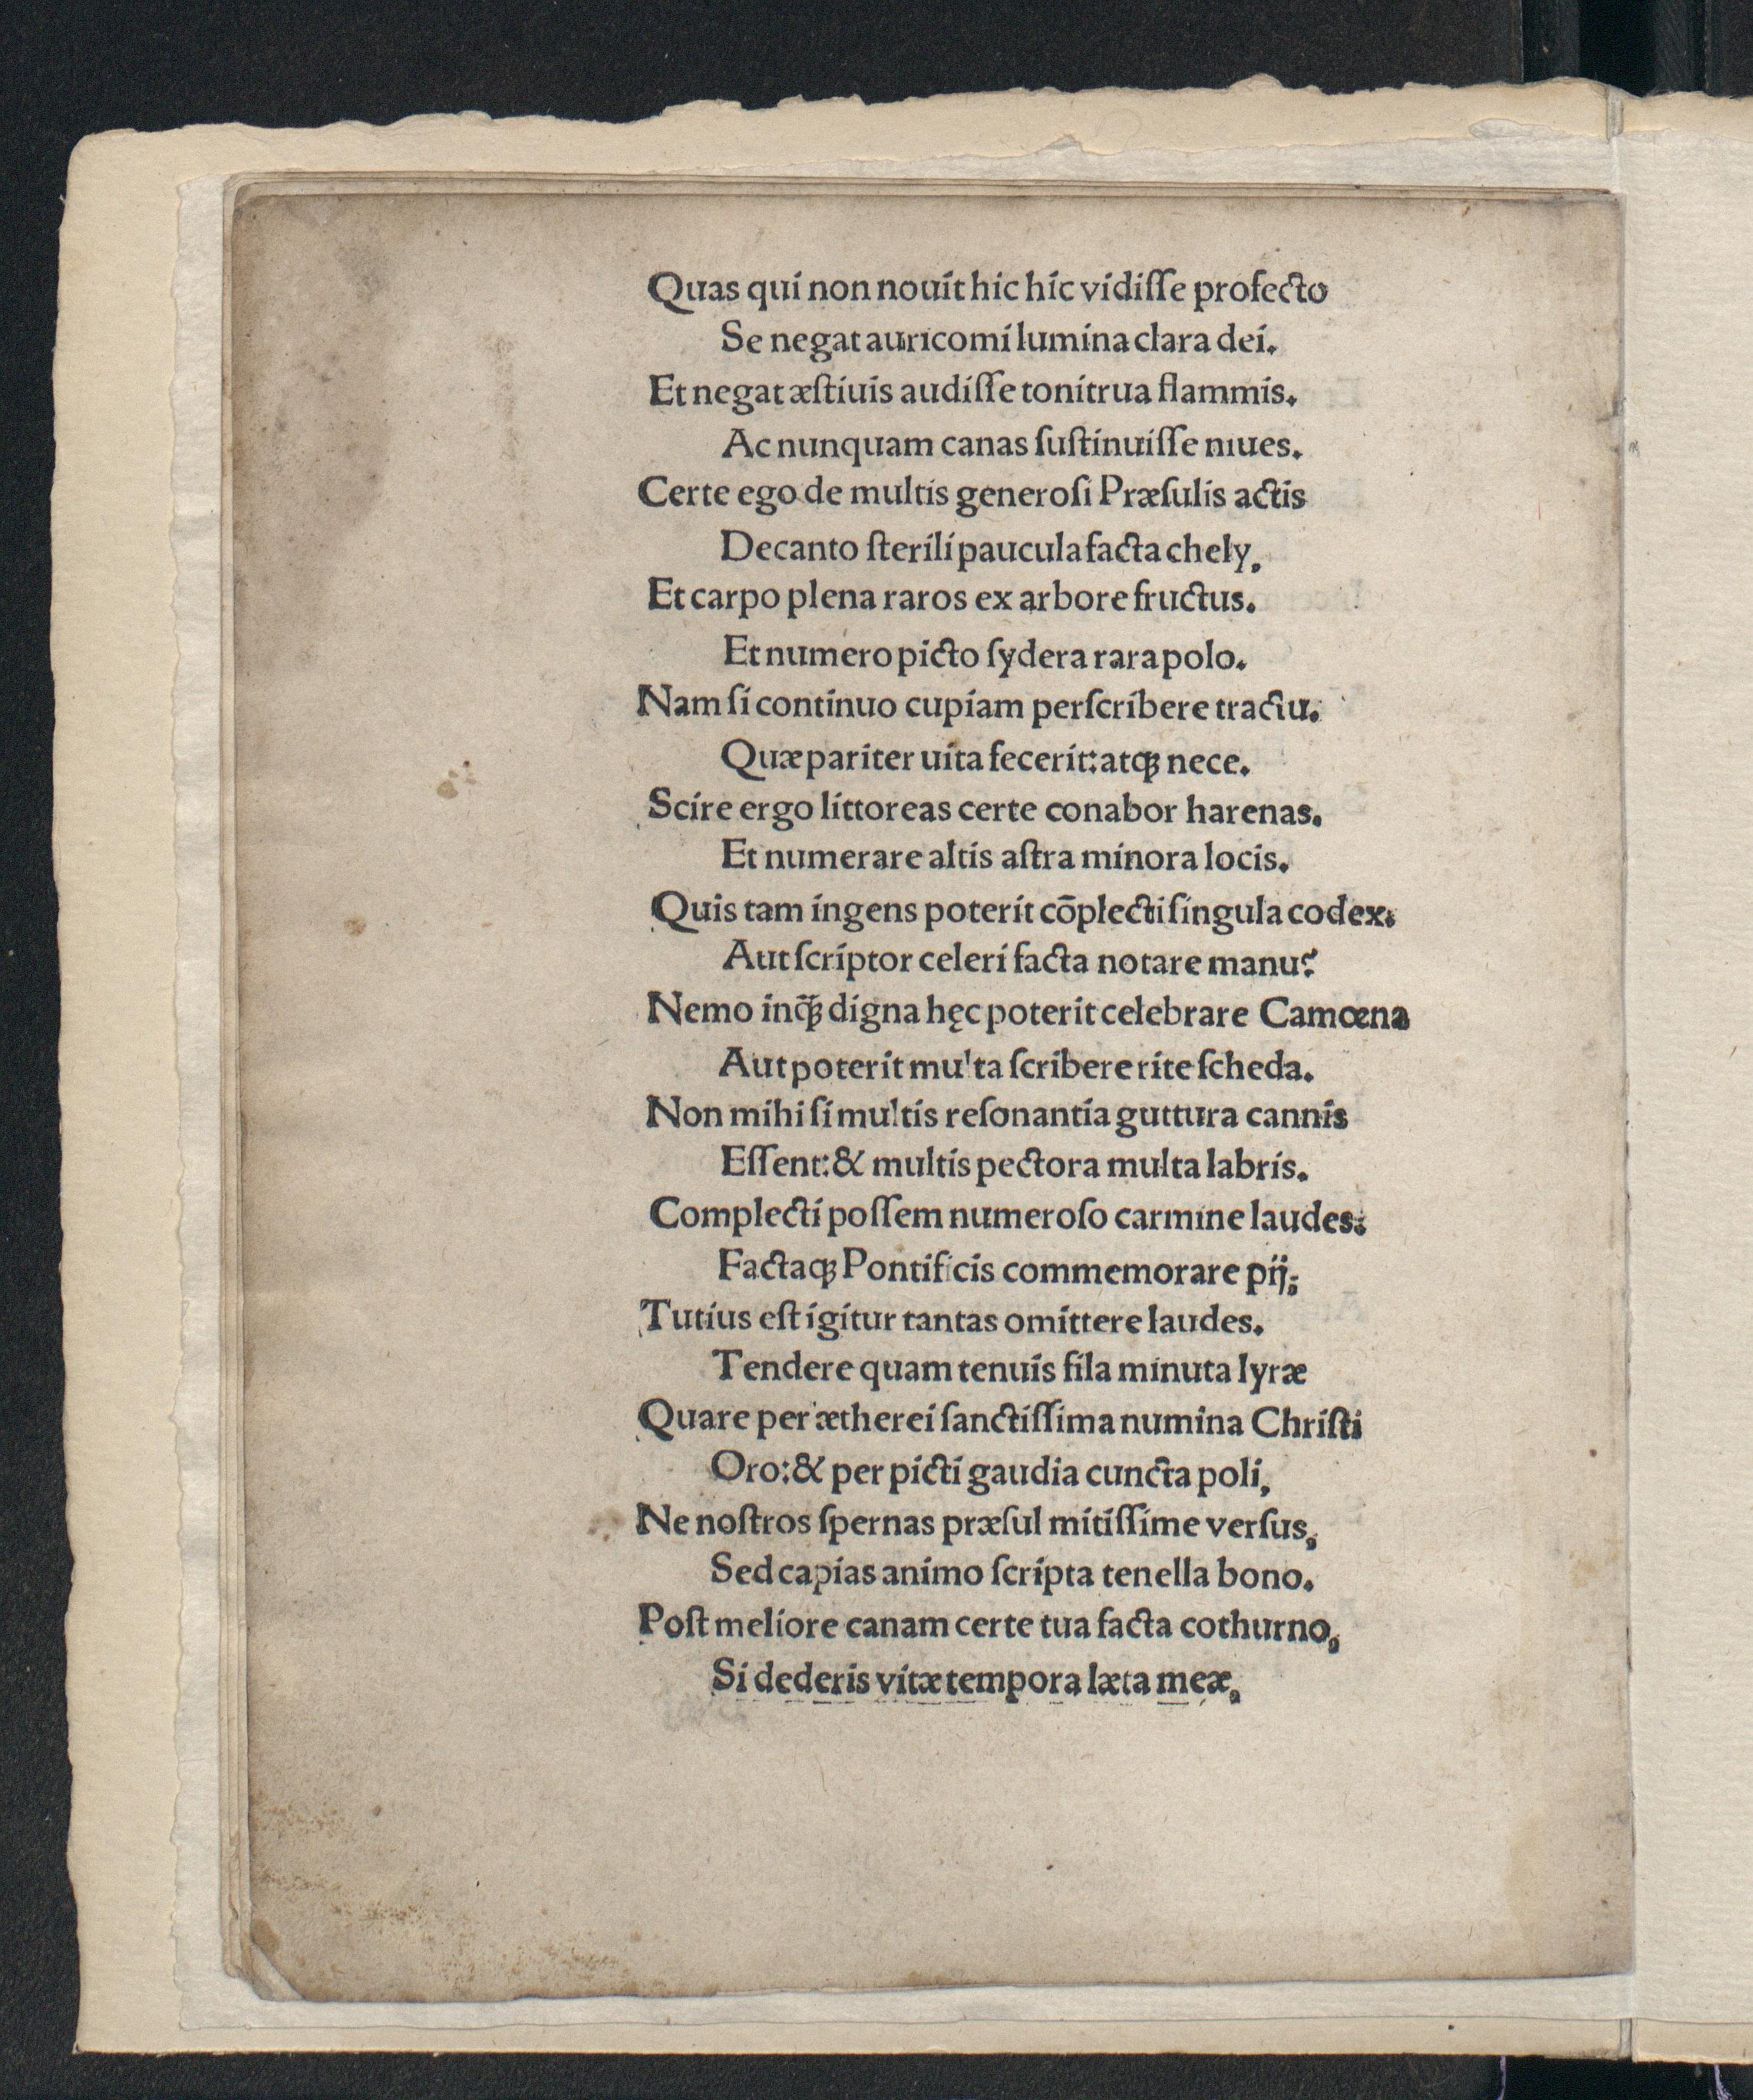 Quas qui non nouit hic hic vidiſſe profecto
Se negat auricomi lumina clara dei.
Et negat æſtiuis audiſſe tonitrua flammis.
Ac nunquam canas ſuſtinuiſſe niues.
Certe ego de multis generoſi Præſulis actis
Decanto ſterili paucula facta chely,
Et carpo plena raros ex arbore fructus.
Et numero picto ſydera rara polo.
Nam ſi continuo cupiam perſcribere tractu.
Quæ pariter uita fecerit: atqꝫ nece.
Scire ergo littoreas certe conabor harenas.
Et numerare altis aſtra minora locis.
Quis tam ingens poterit cōplecti ſingula codex.
Aut ſcriptor celeri facta notare manu?
Nemo inq̃ꝫ digna hęc poterit celebrare Camœna
Aut poterit multa ſcribere rite ſcheda.
Non mihi ſi multis reſonantia guttura cannis
Eſſent: & multis pectora multa labris.
Complecti poſſem numeroſo carmine laudes:
Factaqꝫ Pontificis commemorare pij;
Tutius eſt igitur tantas omittere laudes.
Tendere quam tenuis fila minuta lyræ
Quare per ætherei ſanctiſſima numina Chriſti
Oro: & per picti gaudia cuncta poli,
Ne noſtros ſpernas præſul mitiſſime verſus,
Sed capias animo ſcripta tenella bono.
Poſt meliore canam certe tua facta cothurno,
Si dederis vitæ tempora læta meæ,